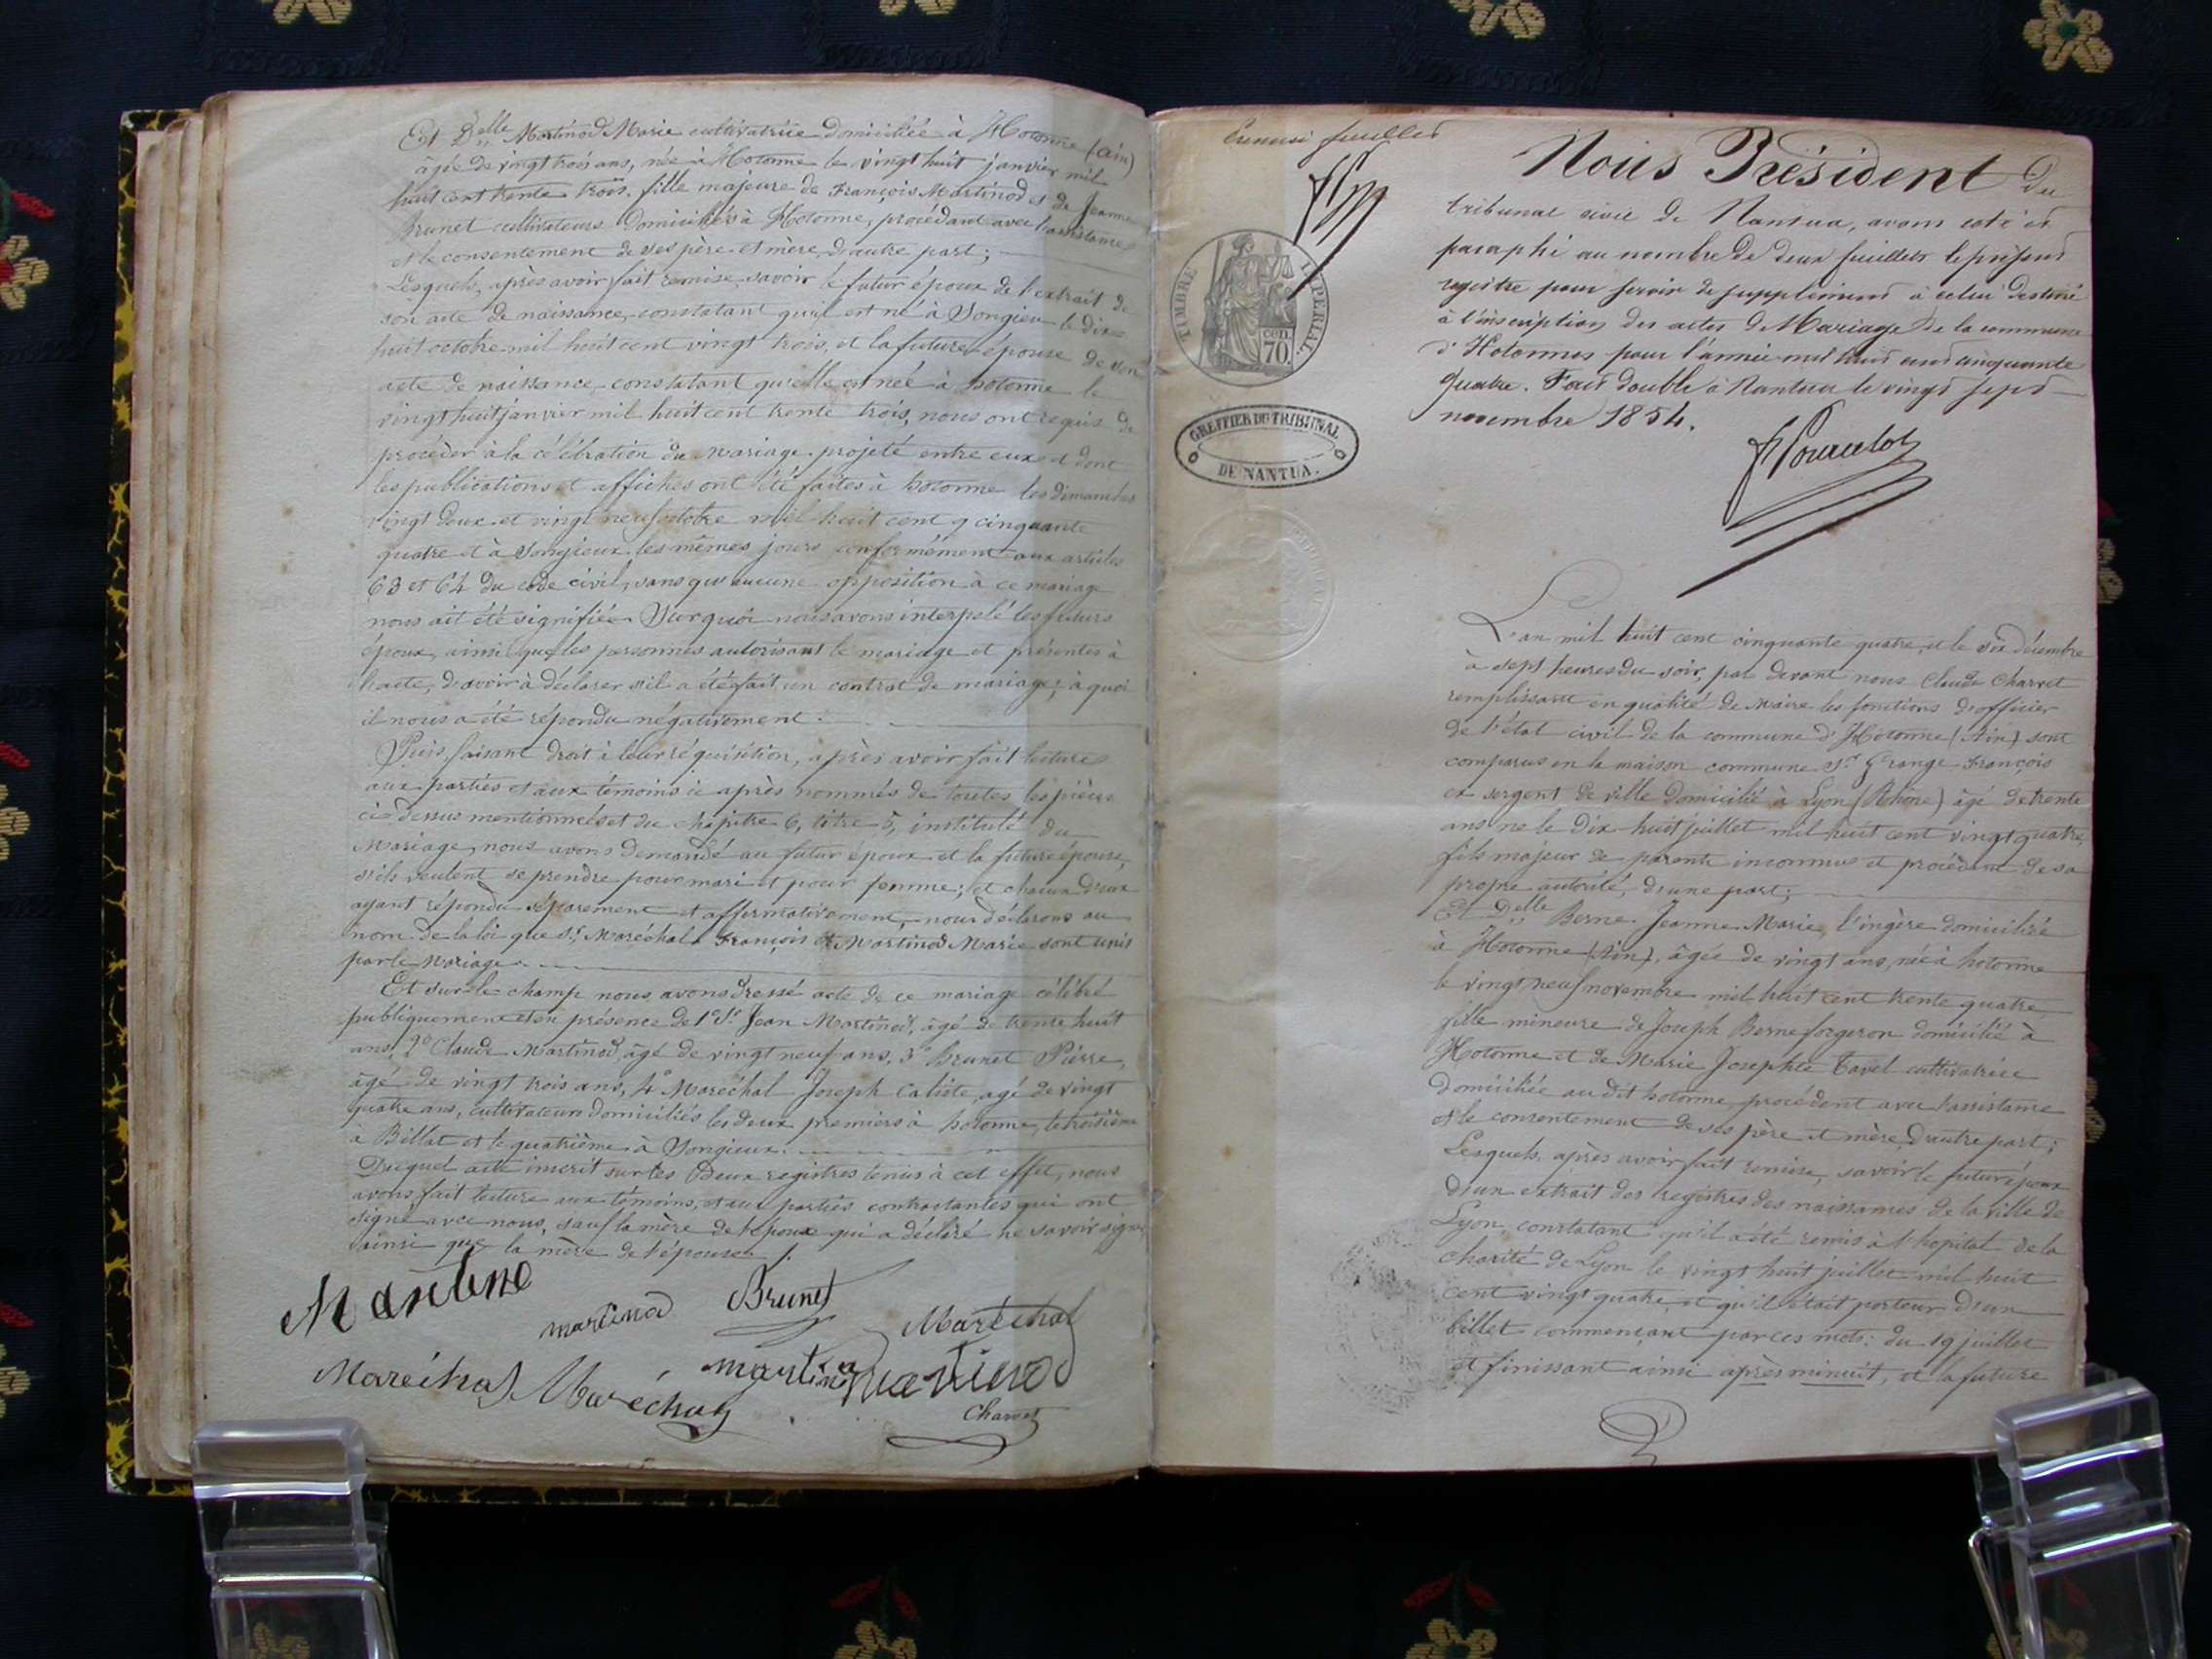 Et Delle Martinod Marie cultivatrice domiciliée à Hotonne (ain)
âgée de vingt trois ans, née à Hotonne le vingt huit janvier mil
huit cent trente trois. fille majeure de François Martinod et de Jeanne
Brunet cultivateurs domiciliés à Hotonne, procédant avec l'assistance
et le consentement de ses père et mère, d'autre part;
Lesquels, après avoir fait remise, savoir le futur époux de l'extrait de
son acte de naissance, constatant qu'il est né à Songieu le dix
huit octobre mil huit cent vingt trois, et la future épouse de son
acte de naissance, constatant qu'elle est née à hotonne le
vingt huit janvier mil huit cent trente trois, nous ont requis de
procéder à la célébration du mariage projeté entre eux et dont
les publications et affiches ont été faites à hotonne les dimanches
vingt deux et vingt neuf octobre mil huit cent cinquante
quatre et à Songieux les mêmes jours conformément aux articles
63 et 64 du code civil, sans qu'aucune opposition à ce mariage
nous ait été signifiée. Sur quoi nous avons interpelé les futurs
époux, ainsi que les personnes autorisant le mariage et présentes à
l'acte, d'avoir à déclarer s'il a été fait un contrat de mariage; à quoi
il nous a été répondu négativement.
Puis, faisant droit à leur réquisition, après avoir fait lecture
aux parties et aux témoins ci après nommés de toutes les pièces
ci dessus mentionnées et du chapitre 6, titre 5, institulé du
Mariage, nous avons demandé au futur époux et la future épouse,
s'ils veulent se prendre pour mari et pour femme; et chacun d'eux
ayant répondu séparement et affirmativement, nous déclarons au
nom de la loi que Sr. Maréchal François et Martinod Marie sont unis
par le Mariage.
Et sur le champ nous avons dressé acte de ce mariage célébré
publiquement et en présence de 1° Sr. Jean Martinod, âgé de trente huit
ans, 2° Claude Martinod âgé de vingt neuf ans, 3° Brunet Pierre,
âgé de vingt trois ans, 4° Maréchal Joseph Caliste, agé de vingt
quatre ans, cultivateurs domiciliés les deux premiers à hotonne, le troisième
à Billat et le quatrième à Songieux.
Duquel acte inscrit sur les deux registres tenus à cet effet, nous
avons fait lecture aux témoins, et aux parties contractantes qui ont
signé avec nous, sauf la mère de l'époux qui a déclaré ne savoir signer
ainsi que la mère de l'épouse.
Martinod
martinod
Brunet
Maréchal
Maréchal
Maréchal
martinod
martinod
Charvet
feuillet
TIMBRE IMPERIAL.
CEN.
70.
GREFFIER DU TRIBUNAL
DE NANTUA.
Nous Président du
tribunal civil de Nantua, avons coté et
paraphé au nombre de deux feuillets le présent
registre pour servir de supplément à celui destiné
à l'inscription des actes de Mariage de la commune
d'Hotonnes pour l'année mil huit cent cinquante
quatre. Fait double à Nantua le vingt sept
novembre 1854.
L'an mil huit cent cinquante quatre, et le six décembre
à sept heures du soir, par devant nous Claude Charvet
remplissant en qualité de Maire les fonctions d'officier
de l'état civil de la commune d'Hotonne (Ain) sont
comparus en la maison commune Sr. Grange François
ex sergent de ville domicilié à Lyon (Rhône) âgé de trente
ans né le dix huit juillet mil huit cent vingt quatre,
fils majeur de parents inconnus et procédant de sa
propre autorité, d'une part;
Et Delle Berne Jeanne Marie, lingère domiciliée
à Hotonne (Ain), âgée de vingt ans, née à hotonne
le vingt neuf novembre mil huit cent trente quatre,
fille mineure de Joseph Berne forgeron domicilié à
Hotonne et de Marie Josephte Tavel cultivatrice
domiciliée au dit hotonne, procédent avec l'assistance
et le consentement de ses père et mère, d'autre part;
Lesquels, après avoir fait remise, savoir le futur époux
d'un extrait des registres des naissances de la ville de
Lyon, constatant qu'il a été remis à l'hopital de la
charité de Lyon le vingt huit juillet mil huit
cent vingt quatre et qu'il était porteur d'un
billet commençant par ces mots: du 19 juillet
et finissant ainsi après minuit, et la future